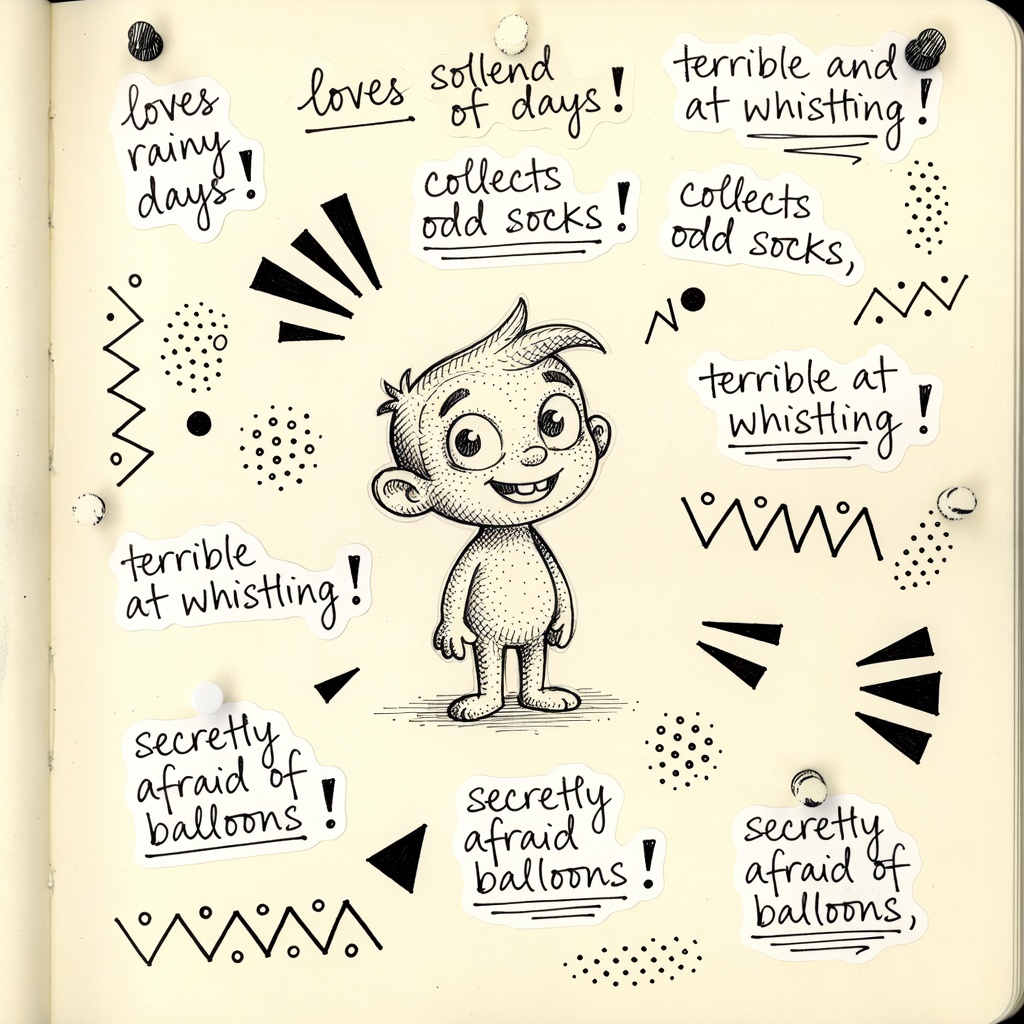 loves
rainy
days!
loves sollend
of days!
terrible and
at whistling!
collects
odd socks!
collects
odd socks,
terrible at
whistling!
terrible
at whistling!
secretly
afraid of
balloons!
secretly
afraid
balloons!
secretly
afraid of
balloons,